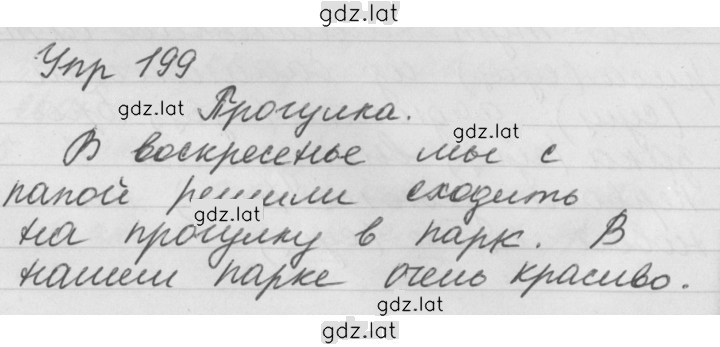 gdz.lat
Упр 199
gdz.lat
Прогулка.
gdz.lat
В воскресенье мы с
папой решили сходить
gdz.lat
на прогулку в парк. В
нашем парке очень красиво.
gdz.lat
gdz.lat